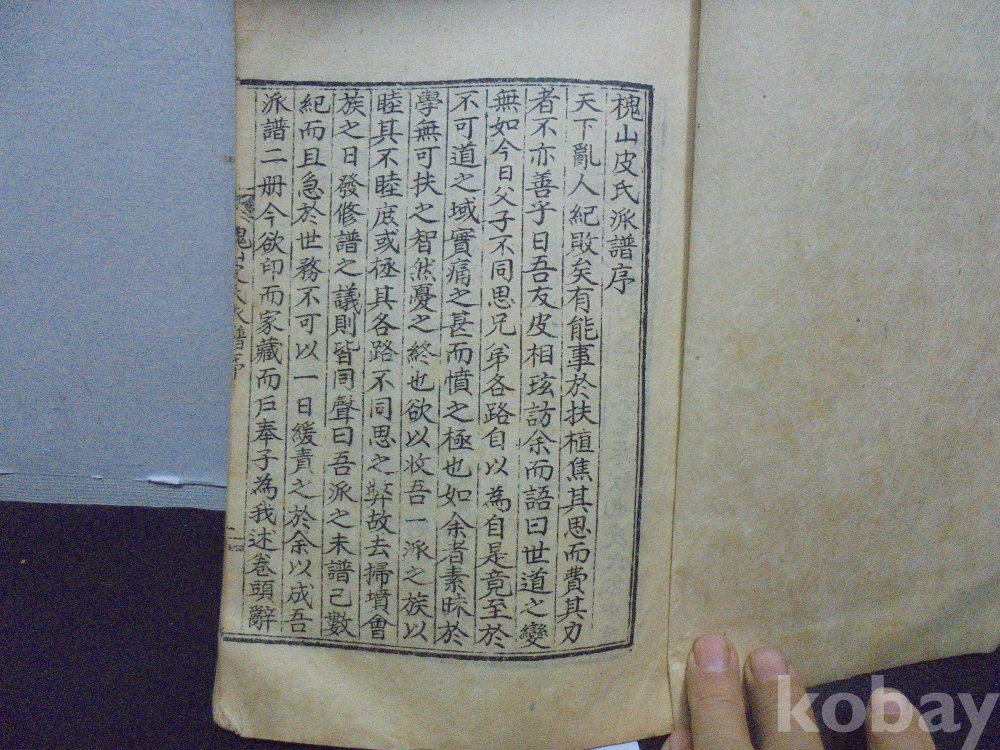 槐山皮氏派譜序
天下亂人紀敗矣有能事於扶植焦其思而費其力
者不亦善乎日吾友皮相玹訪余而語曰世道之變
無如今日父子不同思兄弟各路自以為自是竟至於
不可道之域實痛之甚而憤之極也如余者素昧於
學無可扶之智然憂之終也欲以收吾一派之族以
睦其不睦底或拯其各路不同思之弊故去掃墳會
族之日發修譜之議則皆同聲曰吾派之未譜己數
紀而且急於世務不可以一日緩責之於余以成吾
派譜二册今欲印而家藏而戶奉子為我述卷頭辭
槐山皮氏派譜序
一
kobay